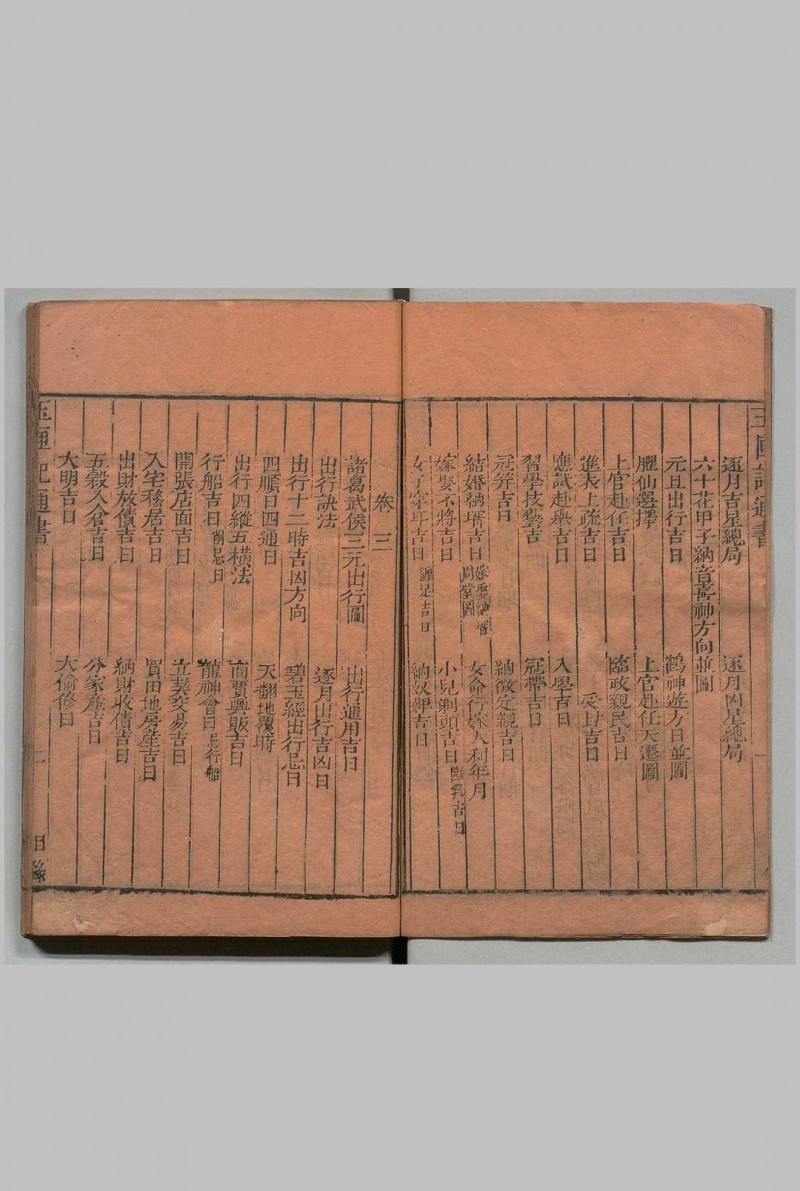 逐月吉星總局　逐月凶星總局
六十花甲子納音喜神方向並圖
元旦出行吉日　鶴神遊方日並圖
臞仙選擇　上官赴任天遷圖
上官赴任吉日　臨政親民吉日
進表上疏吉日　受封吉日
應試赴舉吉日　入學吉日
習學技藝吉　冠帶吉日
冠笄吉日　納徵定親吉日
結婚納壻吉日　嫁娶納壻周堂圖　女命行嫁大利年月
嫁娶不將吉日　小兒剃頭吉日　斷乳吉日
女子穿耳吉日　纏足吉日　納奴婢吉日
卷三
諸葛武侯三元出行圖　出行通用吉日
出行訣法　逐月出行吉凶日
出行十二時吉凶方向　碧玉經出行忌日
四順日四通日　天翻地覆時
出行四縱五橫法　商賈興販吉日
行船吉日　附忌日　龍神會日　忌行船
開張店面吉日　立契交易吉日
入宅移居吉日　買田地房產吉日
出財放債吉日　納財收債吉日
五穀入倉吉日　分家產吉日
大明吉日　大偷修日
玉匣記通書　二　目錄